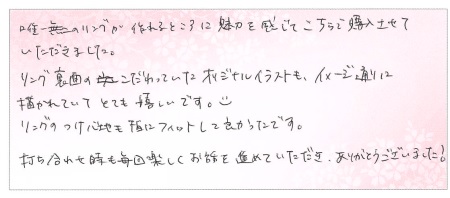 唯一無二のリングが作れるところに魅力を感じてこちらで購入させて
いただきました。
リング裏面のこだわっていたオリジナルイラストも、イメージ通りに
描かれていてとても嬉しいです。
リングのつけ心地も指にフィットして良かったです。
打ち合わせ時も毎回楽しくお話を進めていただき、ありがとうございました!